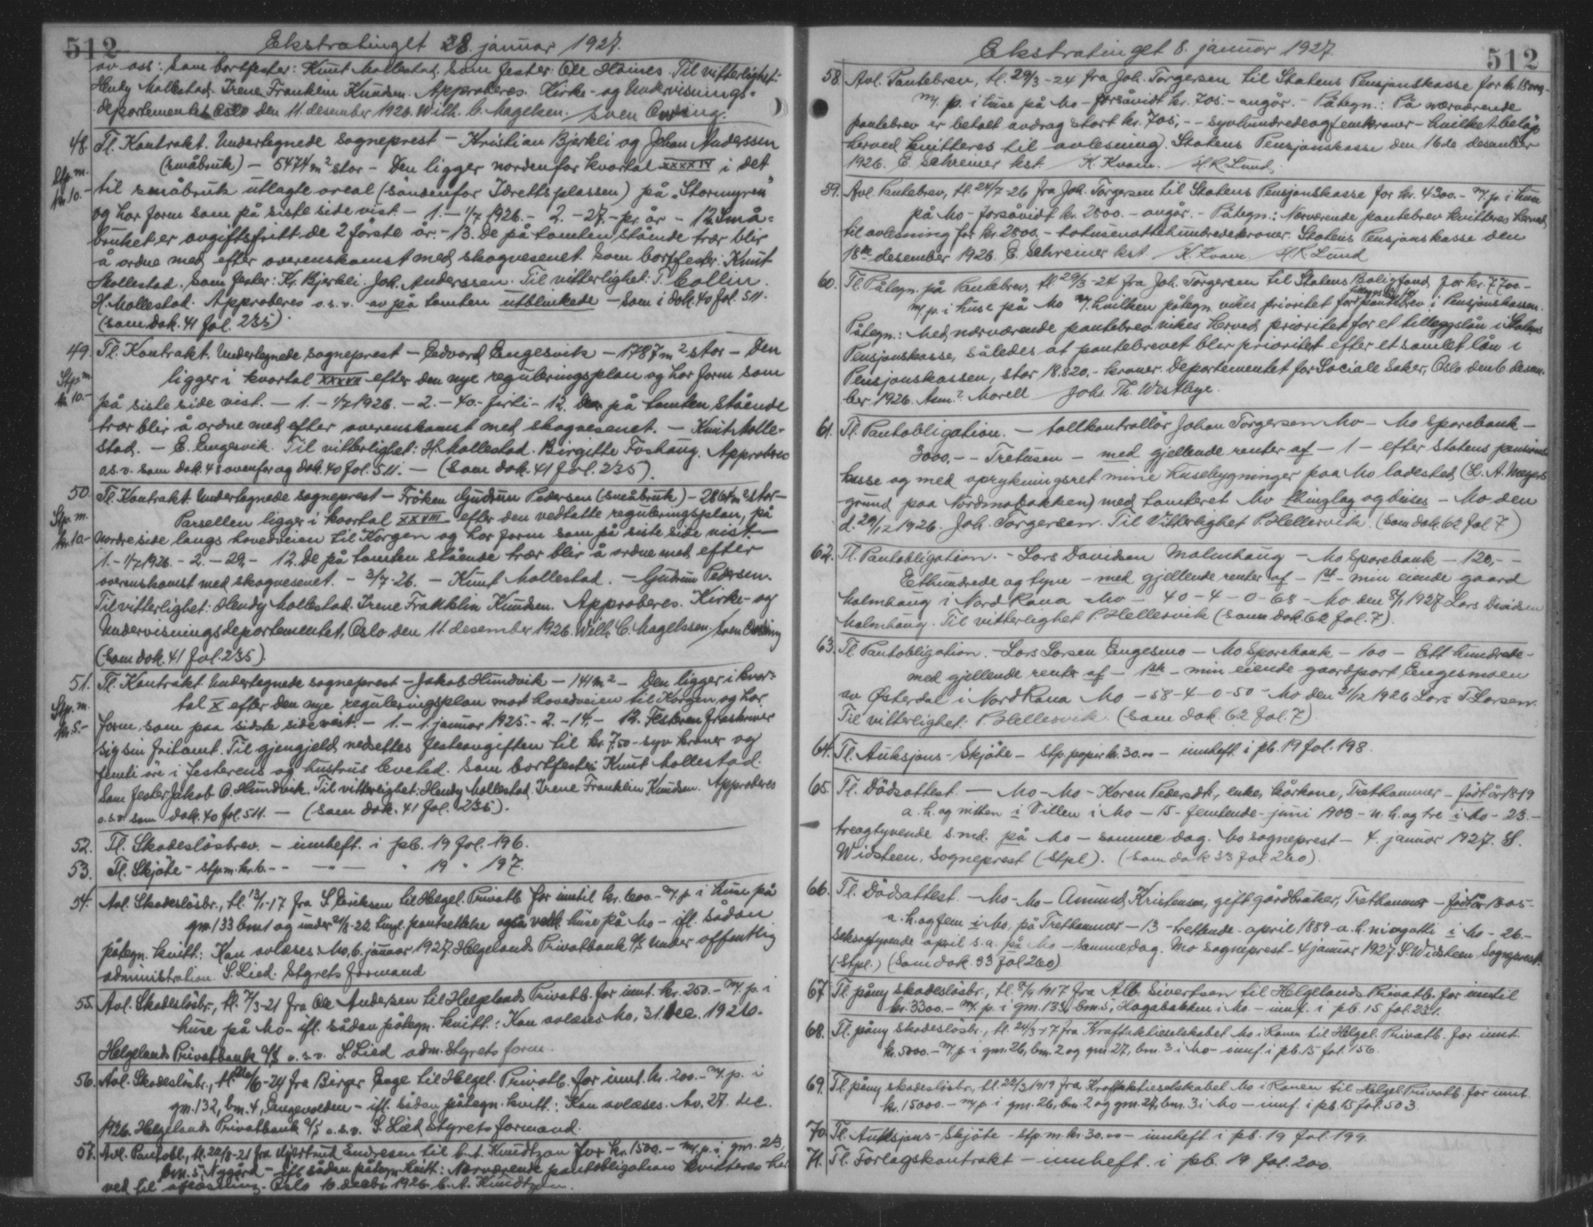 512
Ekstratinget 28. januar 1927.
av oss: som bortfester: Knut Mollestad, som fester: Ole Hoines. Til vitterlighet:
Hendy Mollestad. Irene Franklin Knudsen. Approberes. Kirke- og Undervisnings-
departementet Oslo den 11. desember 1926. Wilh. C. Magelssen. Sven
48. Tl. Kontrakt. Undertegnede sogneprest - Kristian Bjerkli og Johan Anderssen
(småbruk) - 5474 m² stor - Den ligger nordenfor kvartal XXXXIV i det
Stp. m. kr. 10.-
til småbruk utlagte areal (søndenfor Idrettsplassen) på "Stormyren"
og har form som på siste side vist. - 1. - 1/7 1926. - 2. - 27. - pr. år - 12. Små-
bruket er avgiftsfritt de 2 første år. - 13. De på tomten stående trær blir
å ordne med efter overenskomst med skogvesenet. Som bortfester: Knut
Mollestad. Som fester: Kr. Bjerkli. Joh. Anderssen. Til vitterlighet: T. Collin.
H. Mollestad. Approberes o.s.v. - av på tomten utblinkede - Som i dok. 40 fol. 511.
(Som dok. 41 fol. 235).
49. Tl. Kontrakt. Undertegnede sogneprest - Edvard Engesvik - 1787 m² stor - Den
Stp. m. kr. 10.-
ligger i kvartal XXXXX efter den nye reguleringsplan og har form som
på siste side vist. - 1. - 1/7 1926. - 2. - 40. - firti - 12. De på tomten stående
trær blir å ordne med efter overenskomst med skogvesenet. - Knut Molle-
stad. - E. Engesvik. Til vitterlighet: H. Mollestad. Birgitte Foshaug. Approberes
o.s.v. som dok. 48 ovenfor og dok. 40 fol. 511. - (Som dok. 41 fol. 235).
50. Tl. Kontrakt. Undertegnede sogneprest - Frøken Gudrun Pedersen (småbruk) - 2864 m² stor -
Stp. m. kr. 10-
Parsellen ligger i kvartal XXVIII efter den vedtatte reguleringsplan, på
nordre side langs hovedveien til Korgen og har form som på siste side vist. -
1. - 1/7 1926. - 2. - 29. - 12. De på tomten stående trær blir å ordne med efter
overenskomst med skogvesenet. - 3/7-26. - Knut Mollestad. - Gudrun Pedersen.
Til vitterlighet: Hendy Mollestad. Irene Franklin Knudsen. Approberes. Kirke- og
Undervisningsdepartementet, Oslo den 11. desember 1926. Wilh. C. Magelssen/Sven
(Som dok. 41 fol. 235).
51. Tl. Kontrakt. Undertegnede sogneprest - Jakob Hundvik - 141 m² - Den ligger i kvar-
Stp. m. kr. 5.-
tal X efter den nye reguleringsplan mot hovedveien til Korgen og har
form som paa sidste side vist. - 1. - 1. januar 1925. - 2. - 14. - 12. Festeren fraskriver
sig sin fritomt. Til gjengjeld nedsettes festeavgiften til kr. 7.50 - syv kroner og
femti øre i festerens og hustrus levetid. Som bortfester: Knut Mollestad.
Som fester Jakob O. Hundvik. Til vitterlighet: Hendy Mollestad. Irene Franklin Knudsen. Approberes
o.s.v. som dok. 40 fol. 511. - (Som dok. 41 fol. 235).
52. Tl. Skadesløsbrev. - innheft. i pb. 19 fol. 196.
53. Tl. Skjøte - stp. m. kr. 6. - - - " 19 " 197.
54. Avl. Skadesløsbr., tl. 13/1-17 fra S. Eriksen til Helgel. Privatb. for inntil kr. 600.- m. p. i huse på
gm. 133 bm. 1 og under pantsettelse huse på Mo - ifl. sådan
påtegn. kvitt: Kan avlæses. Mo, 6. januar 1927. Helgelands Privatbank A/S Under offentlig
administration S. Lied. Styrets formand
55. Avl. Skadesløsbr., tl. 7/3-21 fra Ole Andersen til Helgelands Privatb. for innt. kr. 250. - m. p. i
huse på Mo - ifl. sådan påtegn. kvitt.: Kan avlæses Mo, 31. Dec. 1926.
Helgelands Privatbank A/S o.s.v. S. Lied adm. Styrets form.
56. Avl. Skadesløsbr., tl. -24 fra Birger Enge til Helgel. Privatb. for innt. kr. 200. - m. p. i
gm. 132, bm. 4, Engevolden - ifl. sådan påtegn. kvitt: Kan avlæses. Mo. 27. dec.
1926. Helgelands Privatbank A/S o.s.v. S. Lied Styrets formand.
57. Avl. Pantobl., tl. 22/8-21 fra Endresen til b.t. Knudtzon for kr. 1500. - m. p. i gm. 23,
bm. 5, - ifl. sådan påtegn. kvitt: Nærværende pantobligation kvitteres her-
ved til avlæsning. Oslo 10. decbr. 1926. Knudtzon.
Ekstratinget 8. januar 1927
512
58. Avl. Pantebrev, tl. 29/3-24 fra Joh. Torgersen til Statens Pensjonskasse for kr.
m. p. i huse på Mo - forsåvidt kr. 705.- angår. - Påtegn.: På nærværende
pantebrev er betalt avdrag stort kr. 705.- - syvhundredeogfemkroner - hvilket beløp
herved kvitteres til avlesning. Statens Pensjonskasse den 16de desember
1926. E. Schreiner kst K. Kvam. H. R. Lund.
59. Avl. Pantebrev, tl. 24/7-26 fra Joh. Torgersen til Statens Pensjonskasse for kr. 4300. - m. p. i huse
på Mo - forsåvidt kr. 2800. - angår. - Påtegn.: Nærværende pantebrev kvitteres herved
til avlesning for kr. 2800. - totusenottehundredekroner. Statens Pensjonskasse den
18de desember 1926. E. Schreiner kst K. Kvam. H. R. Lund
60. Tl. Påtegn. på Pantebrev, tl. 29/3-24 fra Joh. Torgersen til Statens Boligfond for kr. 7700. -
m. p. i huse på Mo m/ hvilken påtegn. vikes prioritet for pantebrev i Pensjonskassen.
Påtegn: Med nærværende pantebrev vikes herved prioritet for et tilleggslån i Statens
Pensjonskasse, således at pantebrevet blir prioritet efter et samlet lån i
Pensjonskassen, stor 18820. - kroner. Departementet for Sociale Saker, Oslo den 6. desem-
ber 1926. Morell Johs. Th. Westbye.
61. Tl. Pantobligation. - tollkontrollør Johan Torgersen Mo - Mo Sparebank -
3000.- - Tretusen - med gjellende renter af - 1 - efter Statens pensions-
kasse og med oprykningsret mine husebygninger paa Mo ladested (L. A. Meyers
grund paa Nordmobakken) med tomteret Mo - Mo den
d. 29/12 1926. Joh. Torgersen. Til Vitterlighet P. Hellesvik. (Som dok. 62 fol. 7)
62. Tl. Pantobligation. - Lars Davidsen Malmhaug - Mo Sparebank - 120,- -
Etthundrede og tyve - med gjellende renter af - 1ste - min eiende gaard
Malmhaug i Nord Rana Mo - 40 - 4 - 0 - 68 - Mo den 5/1 1927 Lars Davidsen
Malmhaug. Til vitterlighet P. Hellesvik (som dok 62 fol. 7).
63. Tl. Pantobligation. - Lars Larsen Engesmo - Mo Sparebank - 100 - Ett hundrede -
med gjellende renter af - 1ste - min eiende gaardpart Engesmoen
av Østerdal i Nord Rana Mo - 58 - 4 - 0 - 50 - Mo den 21/12 1926 Lars T. Larsen.
Til vitterlighet. P. Hellesvik. (Som dok 62 fol. 7)
64. Tl. Auksjons-Skjøte - Stp. papir kr. 30.00 - innheft i pb. 19 fol. 198.
65. Tl. Dødsattest - Mo - Mo - Karen Pedersdt., enke, kårkone, Trethammer - født år 1819
a. h. og nitten i Villen i Mo - 15. femtende - juni 1903 - n. h. og tre i Mo - 23. -
treogtyvende s. md. på Mo - samme dag. Mo sogneprest - 4. januar 1927. S.
Widsteen. Sogneprest (Stpl). (Som dok 33 fol 260)
66. Tl. Dødsattest. - Mo - Mo - Amund Kristensen, gift gårdbruker, Trethammer - født år 1805 -
a. h. og fem i Mo, på Trethammer - 13 - trettende - april 1889 - a. h. niogotti i Mo - 26. -
seksogtyvende april s. a. på Mo - samme dag. Mo sogneprest - 4 januar 1927. S. Widsteen. Sogneprest.
(Stpl.) (Som dok. 33 fol 260)
67. Tl. påny skadesløsbr., tl. 1917 fra Alb. Sivertsen til Helgelands Privatb. for inntil
kr. 3300. - m. p. i gm. 133, bm. 5, Hagabakken i Mo - innf. i pb. 15 fol. 231.
68. Tl. påny skadesløsbr., tl. 24/3-17 fra Kraftaktieselskabet Mo i Ranen til Helgel. Privatb. for innt.
kr. 5000. - m. p. i gm. 26, bm. 2 og gm. 27, bm. 3 i Mo - innf. i pb. 15 fol. 156
69. Tl. påny skadesløsbr., tl. 22/3 1919 fra Kraftaktieselskabet Mo i Ranen til Helgel. Privatb. for innt.
kr. 15000. - m. p. i gm. 26, bm. 2 og gm. 27, bm. 3 i Mo - innf. i pb. 15 fol. 503.
70. Tl. Auksjons-Skjøte - stp. m. kr. 30.00 - innheft i pb. 19 fol. 199.
71. Tl. Forlagskontrakt - innheft. i pb. 19 fol. 200.